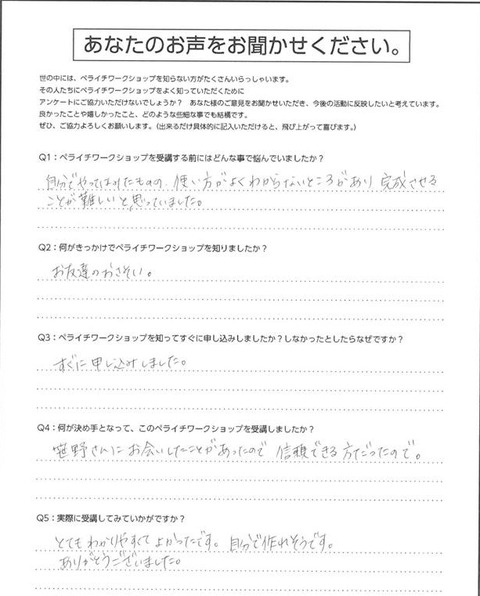 あなたのお声をお聞かせください。
世の中には、ペライチワークショップを知らない方がたくさんいらっしゃいます。
その人たちにペライチワークショップをよく知っていただくために
アンケートにご協力いただけないでしょうか？ あなた様のご意見をお聞かせいただき、今後の活動に反映したいと考えています。
良かったことや嬉しかったこと、どのような些細な事でも結構です。
ぜひ、ご協力よろしくお願いします。(出来るだけ具体的に記入いただけると、飛び上がって喜びます。)
Q1：ペライチワークショップを受講する前にはどんな事で悩んでいましたか？
自分でやってはみたものの、使い方がよくわからないところがあり 完成させる
ことが難しいと思っていました。
Q2：何がきっかけでペライチワークショップを知りましたか？
お友達のおさそい。
Q3：ペライチワークショップを知ってすぐに申し込みしましたか？しなかったとしたらなぜですか？
すぐに申し込みしました。
Q4：何が決め手となって、このペライチワークショップを受講しましたか？
笹野さんにお会いしたことがあったので 信頼できる方だったので。
Q5：実際に受講してみていかがですか？
とてもわかりやすくてよかったです。自分で作れそうです。
ありがとうございました。